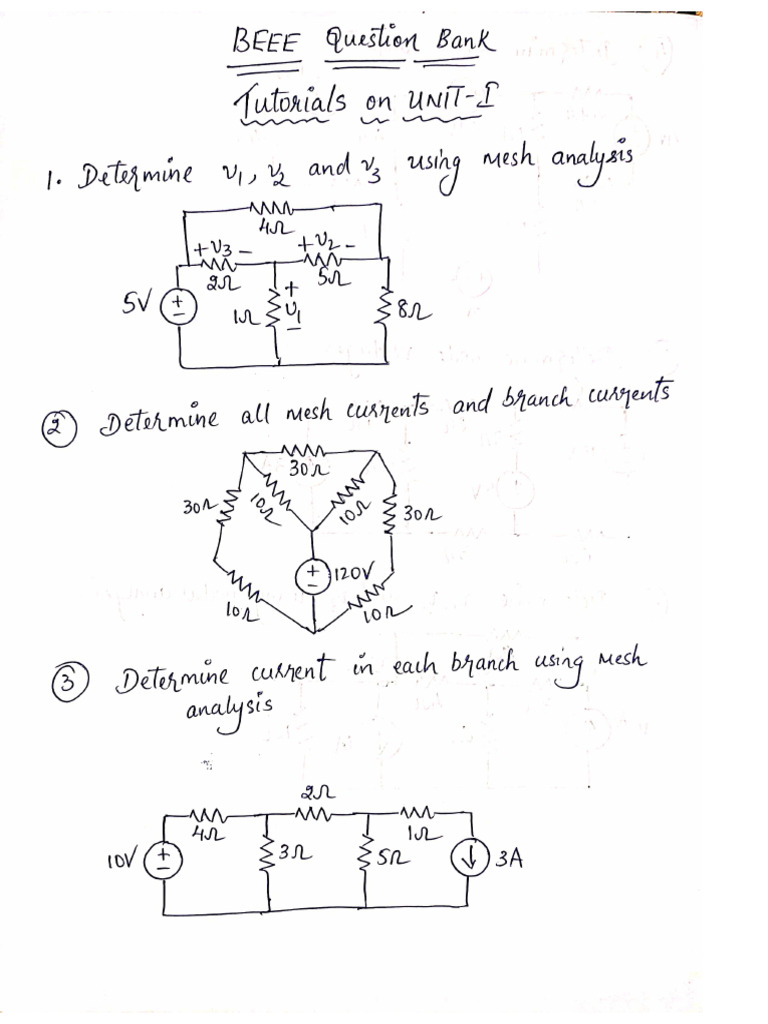 BEEE Question Bank
Tutorials on UNIT-I
1. Determine v1, v2 and v3 using mesh analysis
4Ω
+ v3 − + v2 −
2Ω 5Ω
5V + − 1Ω + v1 − 8Ω
② Determine all mesh currents and branch currents
30Ω
30Ω 10Ω 10Ω 30Ω
+ − 120V
10Ω 10Ω
③ Determine current in each branch using mesh
analysis
2Ω
4Ω 1Ω
10V + − 3Ω 5Ω 3A